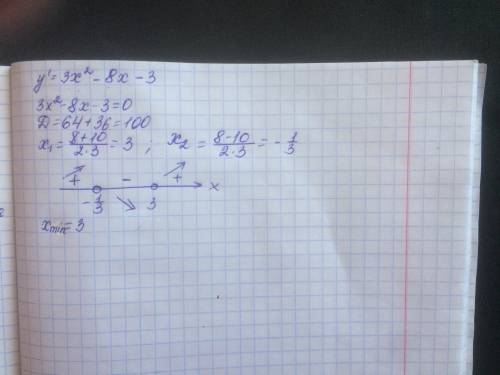 y' = 3x² - 8x - 3
3x² - 8x - 3 = 0
D = 64 + 36 = 100
x₁ = (8+10)/(2·3) = 3 , x₂ = (8-10)/(2·3) = -1/3
+ - +
-1/3 3 x
xmin = 3